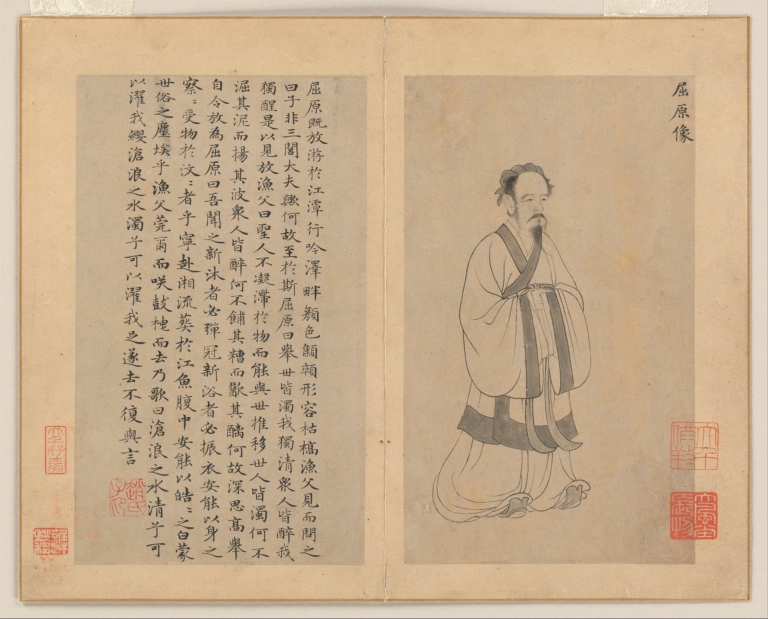 屈原像
屈原既放游於江潭行吟澤畔顏色顦顇形容枯槁漁父見而問之
曰子非三閭大夫歟何故至於斯屈原曰舉世皆濁我獨清衆人皆醉我
獨醒是以見放漁父曰聖人不凝滯於物而能與世推移世人皆濁何不
淈其泥而揚其波衆人皆醉何不餔其糟而歠其醨何故深思高舉
自令放為屈原曰吾聞之新沐者必彈冠新浴者必振衣安能以身之
察〻受物於汶〻者乎寧赴湘流葬於江魚腹中安能以皓〻之白蒙
世俗之塵埃乎漁父莞爾而咲鼓枻而去乃歌曰滄浪之水清兮可
以濯我纓滄浪之水濁兮可以濯我足遂去不復與言